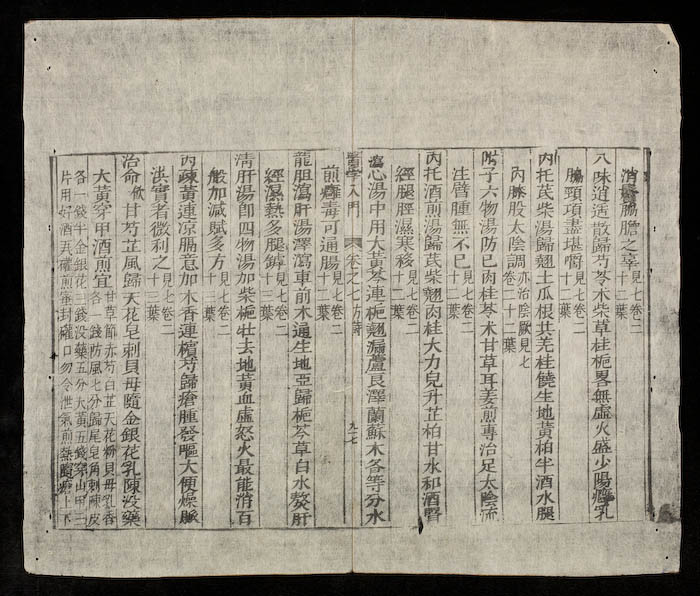 消 膓膽之 見七卷二十二葉
八味逍遙散歸芍苓木柴草桂梔畧無虛火盛少陽癰乳
膓頸項盡堪嚼 見七卷二十二葉
内托芪柴湯歸翹土瓜根共羌桂饒生地黃柏半酒水腿
内膝股太陰調 亦治陰厥見七卷二十二葉
附子六物湯防已肉桂苓木甘草耳姜煎專治足太陰流
注臂腫無不已 見七卷二十二葉
内托酒煎湯歸芪柴翹肉桂大力兒升芷柏甘水和酒腎
經腿脛濕寒移 見七卷二十二葉
瀉心湯中用大黃芩連梔翹漏蘆良澤蘭蘇木各等分水
醫學入門 卷之七 九七
煎癰毒可通腸 見七卷二十二葉
龍胆瀉肝湯澤瀉車前木通生地亞歸梔芩草白水熬肝
經濕熱多腿 見七卷二十三葉
清肝湯即四物湯加柴梔壮去地黃血虛怒火最能消百
般加減賦多方 見七卷二十三葉
内疎黃連凉膈意加木香連檳芍歸瘡腫發嘔大便燥脈
洪實者微利之 見七卷二十三葉
治命飲甘芍芷風歸天花皂刺貝母隨金銀花乳陳没藥
大黃穿甲酒煎宜 甘草節赤芍白芷天花粉貝母乳香各一錢防風七分歸尾皂角刺陳皮
各一錢半金銀花三錢没藥五分大黃五錢穿山甲三
片用好酒五 煎 封 口勿令泄氣煎 隨 上下